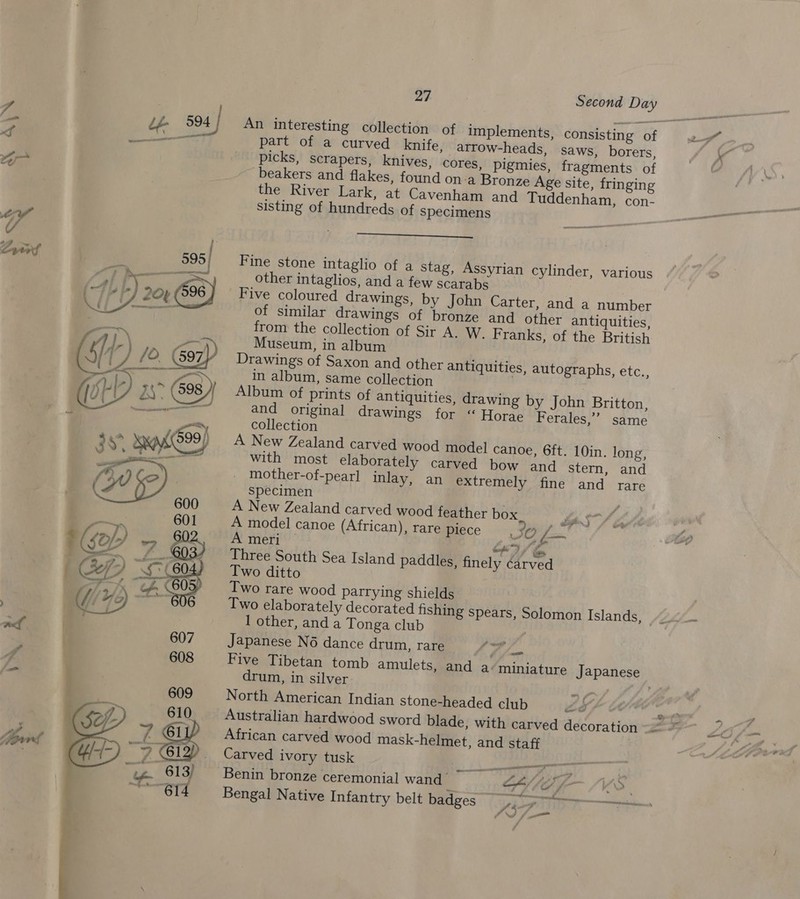 27 Second Day
594 An interesting collection of implements, consisting of
part of a curved knife, arrow-heads, saws, borers,
picks, scrapers, knives, cores, pigmies, fragments of
beakers and flakes, found on a Bronze Age site, fringing
the River Lark, at Cavenham and Tuddenham, con-
sisting of hundreds of specimens
595 Fine stone intaglio of a stag, Assyrian cylinder, various
other intaglios, and a few scarabs
596 Five coloured drawings, by John Carter, and a number
of similar drawings of bronze and other antiquities,
from the collection of Sir A. W. Franks, of the British
Museum, in album
597 Drawings of Saxon and other antiquities, autographs, etc.,
in album, same collection
598 Album of prints of antiquities, drawing by John Britton,
and original drawings for “Horae Ferales,” same
collection
599 A New Zealand carved wood model canoe, 6ft. 10in. long,
with most elaborately carved bow and stern, and
mother-of-pearl inlay, an extremely fine and rare
specimen
600 A New Zealand carved wood feather box
601 A model canoe (African), rare piece
602 A meri
603 Three South Sea Island paddles, finely carved
604 Two ditto
605 Two rare wood parrying shields
606 Two elaborately decorated fishing spears, Solomon Islands,
1 other, and a Tonga club
607 Japanese Nō dance drum, rare
608 Five Tibetan tomb amulets, and a miniature Japanese
drum, in silver
609 North American Indian stone-headed club
610 Australian hardwood sword blade, with carved decoration
611 African carved wood mask-helmet, and staff
612 Carved ivory tusk
613 Benin bronze ceremonial wand
614 Bengal Native Infantry belt badges